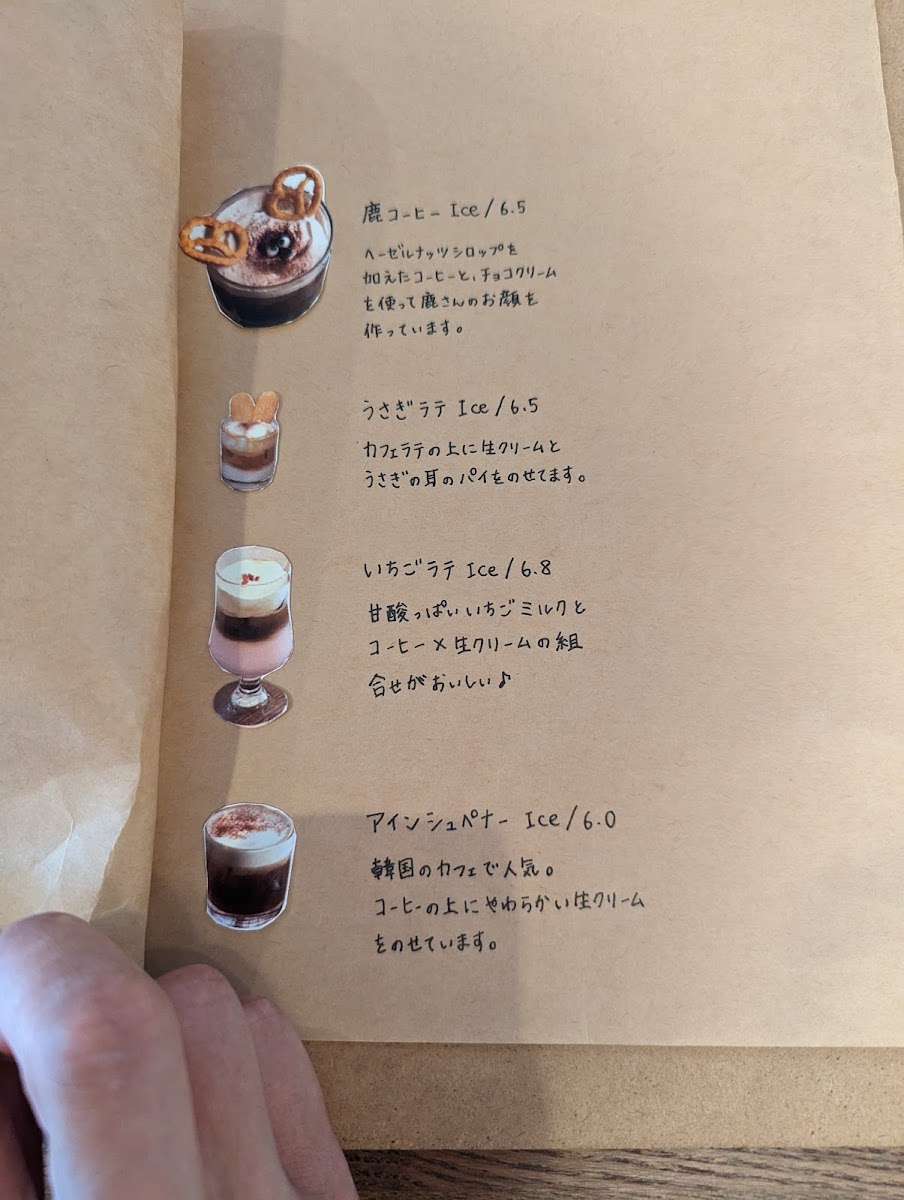 鹿コーヒー Ice / 6.5
ヘーゼルナッツシロップを
加えたコーヒーと、チョコクリーム
を使って鹿さんのお顔を
作っています。
うさぎラテ Ice / 6.5
カフェラテの上に生クリームと
うさぎの耳のパイをのせてます。
いちごラテ Ice / 6.8
甘酸っぱいいちごミルクと
コーヒー×生クリームの組
合せがおいしい♪
アインシュペナー Ice / 6.0
韓国のカフェで人気。
コーヒーの上にやわらかい生クリーム
をのせています。